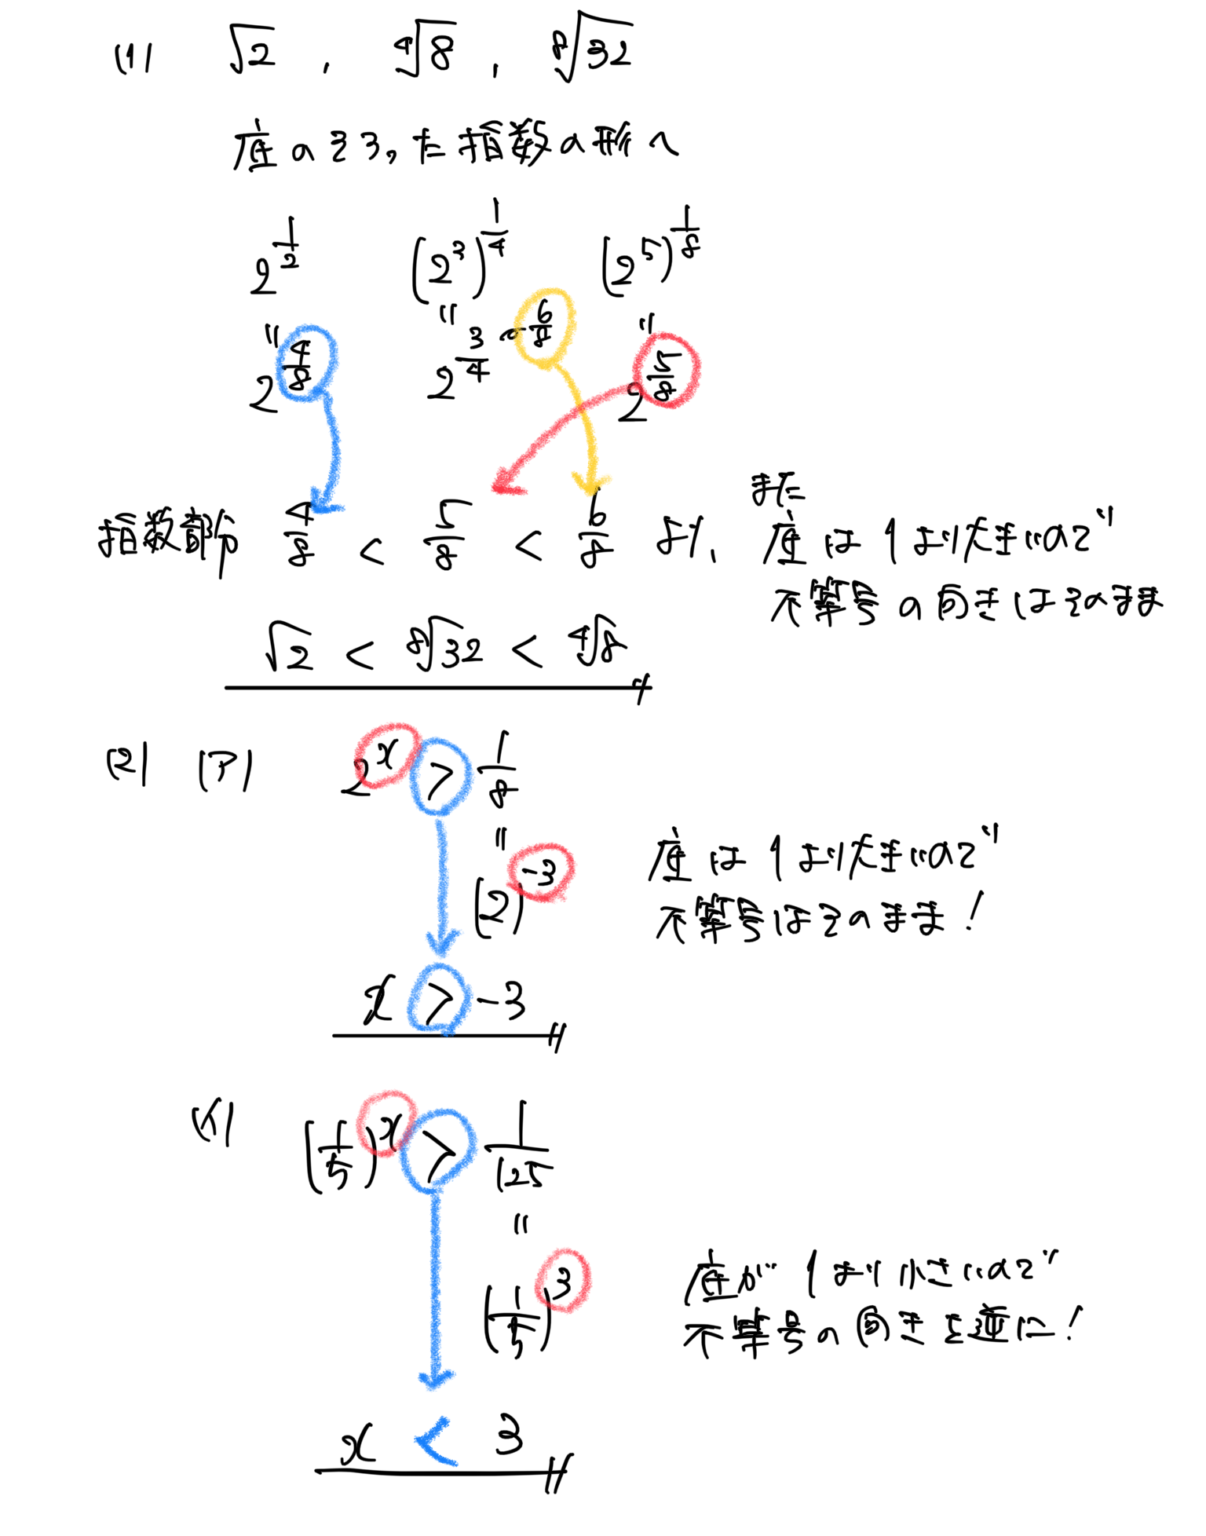 (1) √2 , ⁴√8 , ⁸√32
底のそろった指数の形へ
2^(1/2) (2^3)^(1/4) (2^5)^(1/8)
= = =
2^(4/8) 2^(3/4) ← 6/8 2^(5/8)
指数部分 4/8 < 5/8 < 6/8 より、
また
底は1より大きいので
不等号の向きはそのまま
√2 < ⁸√32 < ⁴√8
(2) (ア) 2^x > 1/8
=
(2)^-3
底は1より大きいので
不等号はそのまま!
x > -3
(イ) (1/5)^x > 1/125
=
(1/5)^3
底が1より小さいので
不等号の向きを逆に!
x < 3